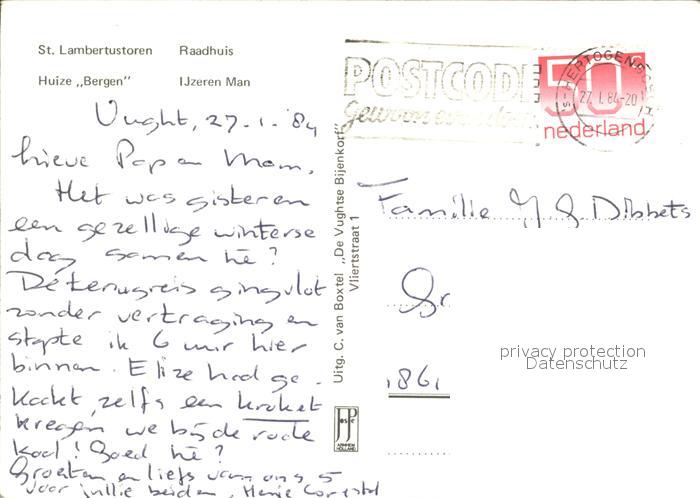 St. Lambertustoren Raadhuis
Huize „Bergen" IJzeren Man
POSTCODE
gewoon even doen
50 c
nederland
'S-HERTOGENBOSCH
27.I.84-20
Vught, 27-1-'84
Lieve Pap en Mam,
Het was gisteren
een gezellige winterse
dag samen hè?
De terugreis ging vlot
zonder vertraging en
stapte ik 6 uur hier
binnen. Elize had ge-
kookt, zelfs een kroket
kregen we bij de rode
kool! Goed hè?
Groeten en liefs van ons 5
voor jullie beiden,
Uitg. C. van Boxtel „De Vughtse Bijenkorf"
Vliertstraat 1
JosPé
ARNHEM
HOLLAND
Familie J. G. Dibbets
Gr
1861
privacy protection
Datenschutz